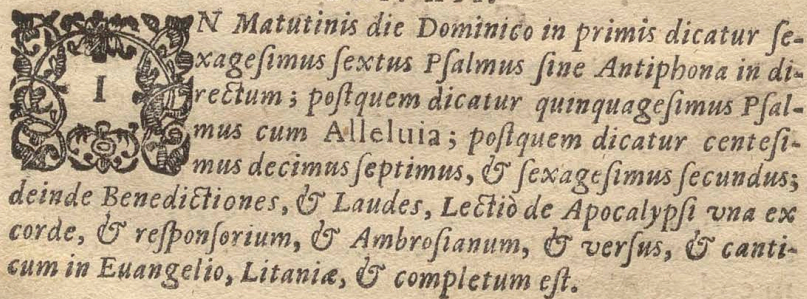 IN Matutinis die Dominico in primis dicatur ſe-
xageſimus ſextus Pſalmus ſine Antiphona in di-
rectum; poſtquem dicatur quinquageſimus Pſal-
mus cum Alleluia; poſtquem dicatur centeſi-
mus decimus ſeptimus, & ſexageſimus ſecundus;
deinde Benedictiones, & Laudes, Lectiò de Apocalypſi vna ex
corde, & reſponſorium, & Ambroſianum, & verſus, & canti-
cum in Euangelio, Litaniæ, & completum eſt.